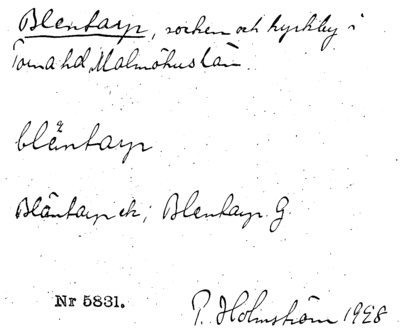 Blentarp, socken och kyrkby i
Torna hd, Malmöhus län.
bläntarp
Bläntarp ek; Blentarp G.
Nr 5831.
P. Holmström 1928